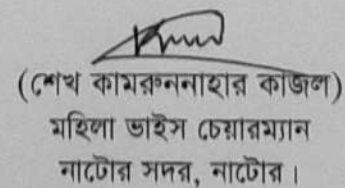 (শেখ কামরুননাহার কাজল)
মহিলা ভাইস চেয়ারম্যান
নাটোর সদর, নাটোর।